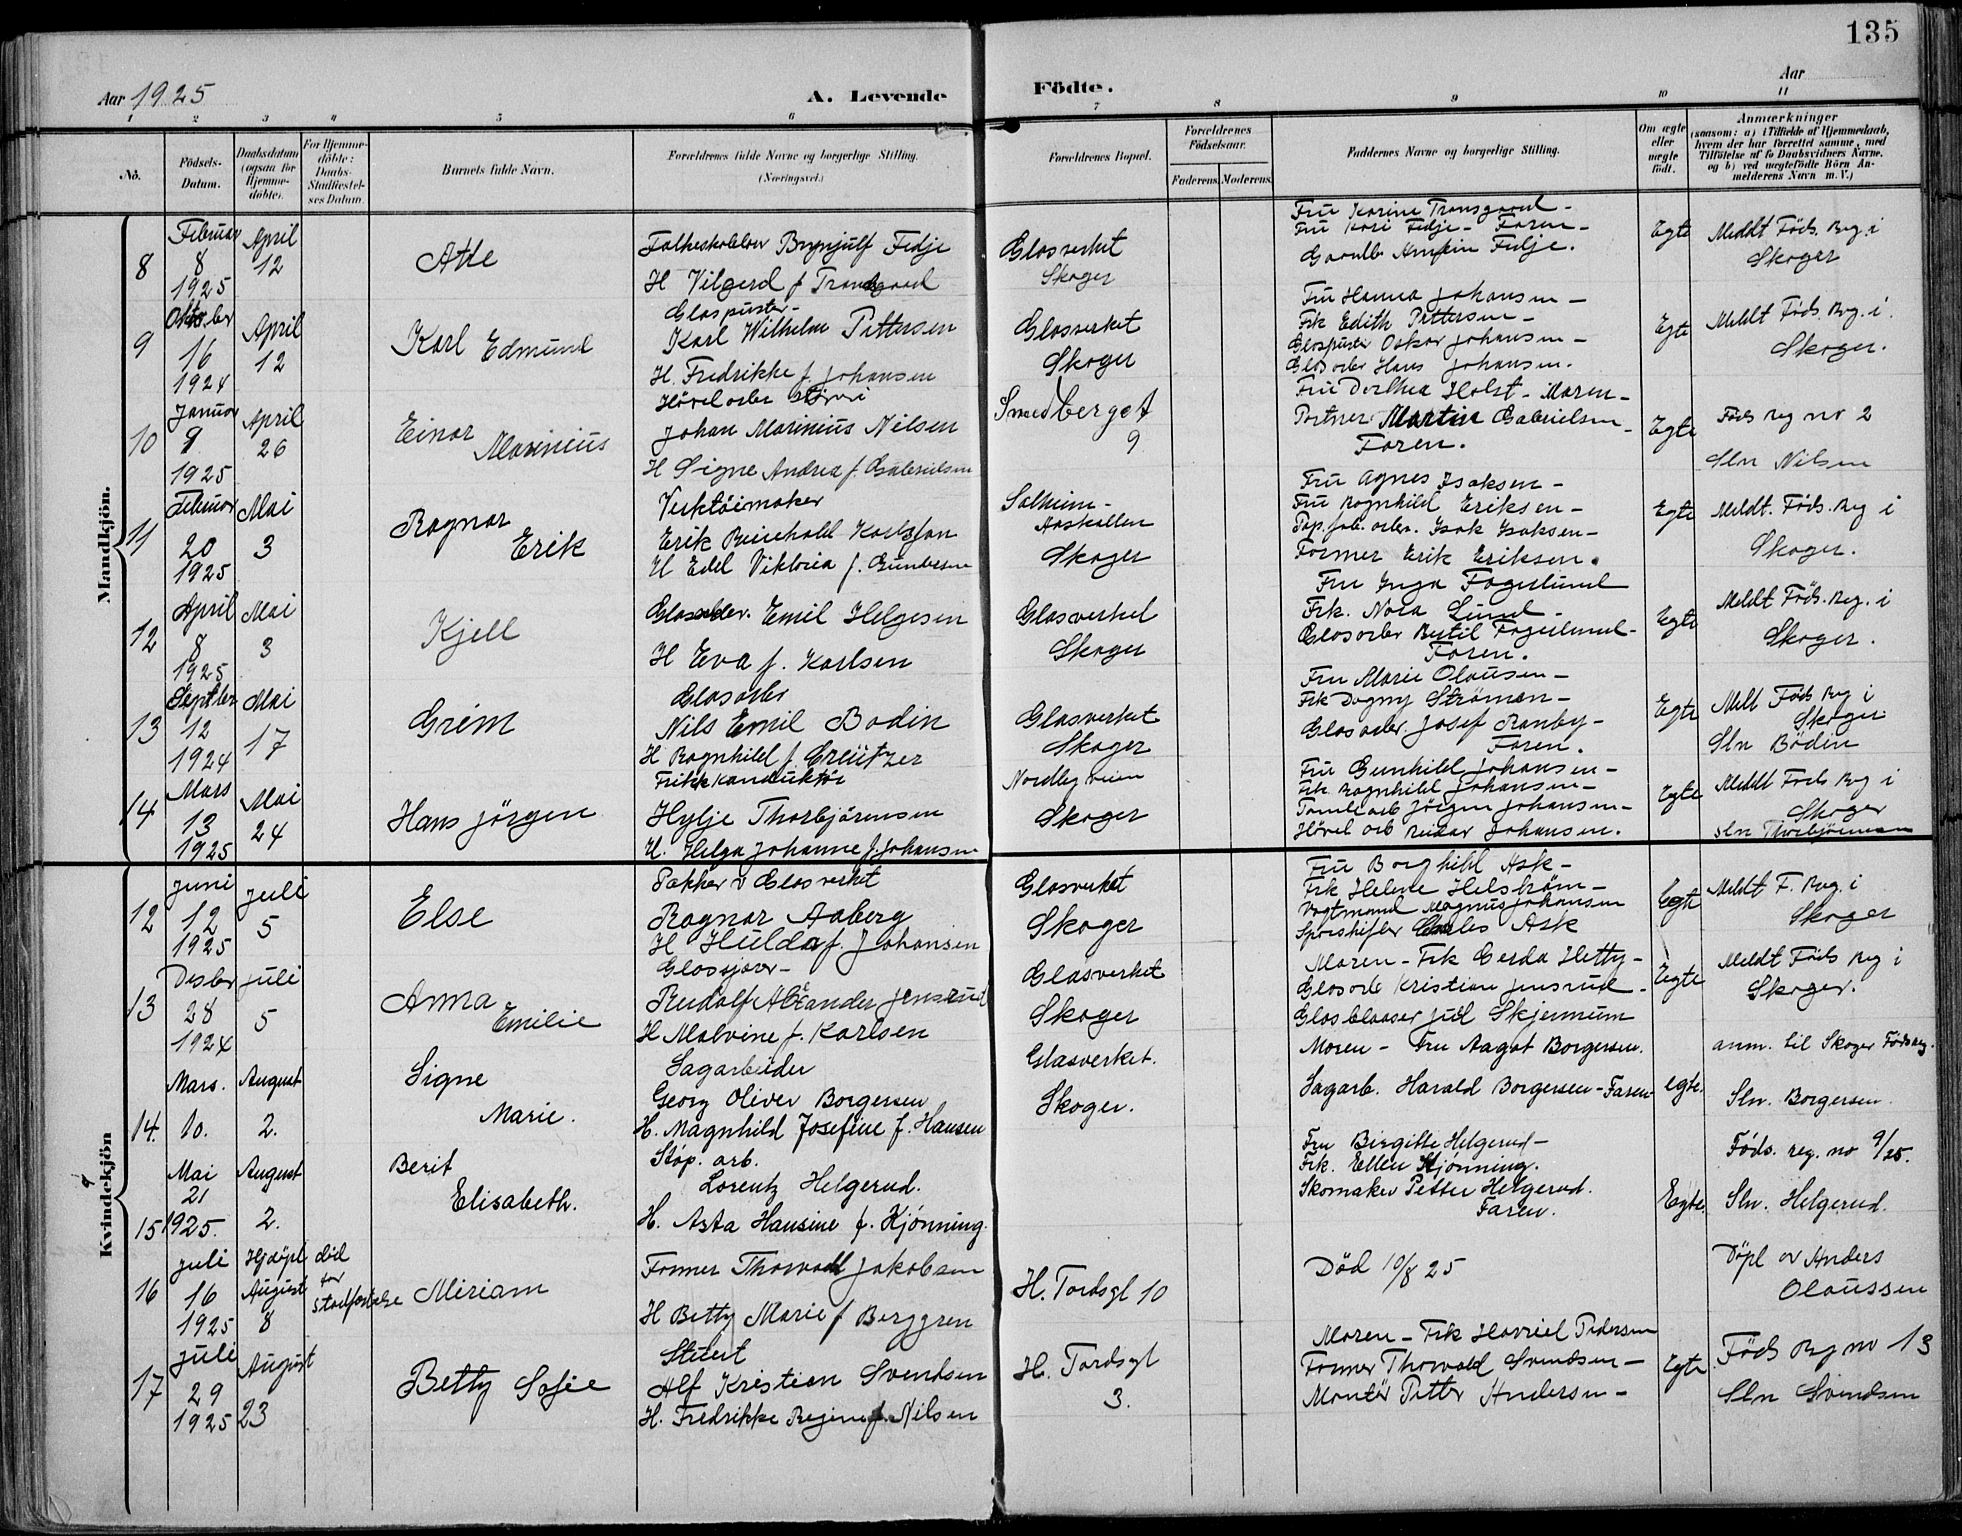 135
Aar 1925
A. Levende
Födte.
Aar
1 2 3 4 5 6 7 8 9 10 11
No.
Födsels-Datum.
Daabsdatum (ogsaa for Hjemme-döbte).
For Hjemme-döbte: Daabs-Stadfæstel-ses Datum.
Barnets fulde Navn.
Forældrenes fulde Navne og borgerlige Stilling.
(Næringsvei.)
Forældrenes Bopæl.
Forældrenes Födselsaar.
Faderens. Moderens.
Faddernes Navne og borgerlige Stilling.
Om ægte eller uægte födt.
Anmærkninger
(saasom: a) i Tilfælde af Hjemmedaab,
hvem der har forrettet samme, med
Tilföielse af to Daabsvidners Navne.
og b) ved uægtefödte Börn An-
melderens Navn m. V.)
Mandkjön.
8
Februar
8
1925
April
12
Atle
Folkeskolelær Brynjulf Fedje
H Vilgerd f Transgaard
Glasverket
Skoger
Fru Karine Transgaard -
Fru Kari Fedje - Faren -
Fedje.
Egte
Meldt Føds. Reg. i
Skoger
9
Oktober
16
1924
April
12
Karl Edmund
Glaspuster -
Karl Wilhelm Pettersen
H. Fredrikke f. Johansen
Glasverket
Skoger
Fru Hanna Johansen -
Frk Edith Pettersen -
Glaspuster Oskar Johansen -
Glasarbr Hans Johansen.
Egte
Meldt Føds. Reg. i.
Skoger.
10
Januar
9
1925
April
26
Einar Marinius
Høvelarbr
Johan Marinius Nilsen
H Signe Andrea f. Gabrielsen
Smedberget
9
Fru Dorthea Holst - Moren -
Portner Martin Gabrielsen -
Faren.
Egte
Føds reg no 2
Sln Nilsen
11
Februar
20
1925
Mai
3
Ragnar
Erik
Verktøimaker
Erik Reinhold Karlsson
H Edel Viktoria f. Gundersen
Solheim -
Aaskollen
Skoger
Fru Agnes Isaksen -
Fru Ragnhild Eriksen -
Pap. fab. arbr. Isak Isaksen -
Former Erik Eriksen.
Egte
Meldt. Føds. Reg i
Skoger.
12
April
8
1925
Mai
3
Kjell
Glasarbr. Emil Helgesen
H Eva f. Karlsen
Glasverket
Skoger
Fru Inga Fagerlund
Frk. Nora Lund -
Glasarbr Bertil Fagerlund -
Faren.
Egte
Meldt Føds. Reg. i
Skoger.
13
Septber
12
1924
Mai
17
Grim
Glasarbr
Nils Emil Bodin
H Ragnhild f. Creützer
Glasverket
Skoger
Fru Marie Olausen -
Frk Dagny Strömen -
Glasarbr. Josef Ranby -
Faren.
Egte
Meldt Føds Reg i
Skoger
Sln Bödin
14
Mars
13
1925
Mai
24
Hans Jörgen
Trikkkonduktør
Hylje Thorbjörnsen
H. Helga Johanne f. Johansen
Nordbyveien
Skoger
Fru Gunhild Johansen -
Frk Ragnhild Johansen -
Tomtearb Jörgen Johansen -
Hövel arb Reidar Johansen.
Egte
Meldt Føds Reg i
Skoger
Sln Thorbjörnsen
Kvindekjön
12
Juni
12
1925
Juli
5
Else
Pakker v Glasverket
Ragnar Aaberg
H Hulda f. Johansen
Glasverket
Skoger
Fru Borghild Ask -
Frk Helene Helström -
Vogtmand Magnus Johansen
Sporskifter Ask
Egte
Meldt F. Reg. i
Skoger
13
Desbr
28
1924
Juli
5
Anna
Emilie
Glassjærer -
Rudolf Alexander Jensrud
H Malvine f. Karlsen
Glasverket
Skoger
Moren - Frk Gerda Hetty -
Glasarb Kristian Jensrud -
Glasblaaser Juel Skjennum
Egte
Meldt Føds Reg i
Skoger.
14.
Mars.
10.
August
2.
Signe
Marie.
Sagarbeider
Georg Oliver Borgersen
H. Magnhild Josefine f. Hansen
Glasverket.
Skoger.
Moren - Fru Aagot Borgersen.
Sagarb. Harald Borgersen - Faren.
egte.
anm. til Skoger Føds reg.
Sln. Borgersen.
15
Mai
21
1925.
August
2.
Berit
Elisabeth.
Støp. arb.
Lorentz Helgerud.
H. Asta Hansine f. Kjönning.
Fru Birgitte Helgerud -
Frk. Ellen Kjönning.
Skomaker Petter Helgerud.
Faren.
Egte.
Føds. reg. no 9/25.
Sln. Helgerud.
16
Juli
16
1925
Hjdøpt
August
8
död
før
stadfæstelse
Miriam
Former Thorvald Jakobsen
H Betty Marie f Berggren
H. Tordsgt 10
Død 10/8 25
Døpt av Anders
Olaussen
17
Juli
29
1925
August
23
Betty Sofie
Stuert
Alf Kristian Svendsen
H. Fredrikke Regine f. Nilsen
H. Tordsgt
3.
Moren - Frk Harriet Pedersen
Former Thorvald Svendsen -
Montör Petter Andersen -
Egte
Føds Reg no 13
Sln Svendsen